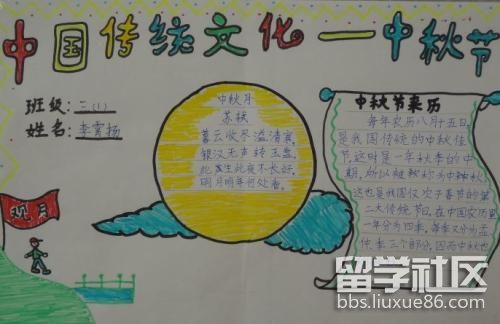 中国传统文化一中秋节
班级:三(1)
姓名:李霄扬
中秋月
苏轼
暮云收尽溢清寒,
银汉无声转玉盘,
此生此夜不长好,
明月明年何处看。
中秋节来历
每年农历八月十五日,
是我国传统的中秋佳
节,这时是一年秋季的中
期,所以被称为中秋秋
这也是我国仅次于春节的第
二大传统节日,在中国农历里
一年分为四季,每季又分为孟
仲季三个部分,因而中秋也
观月
留学社区
bbs.liuxue86.com